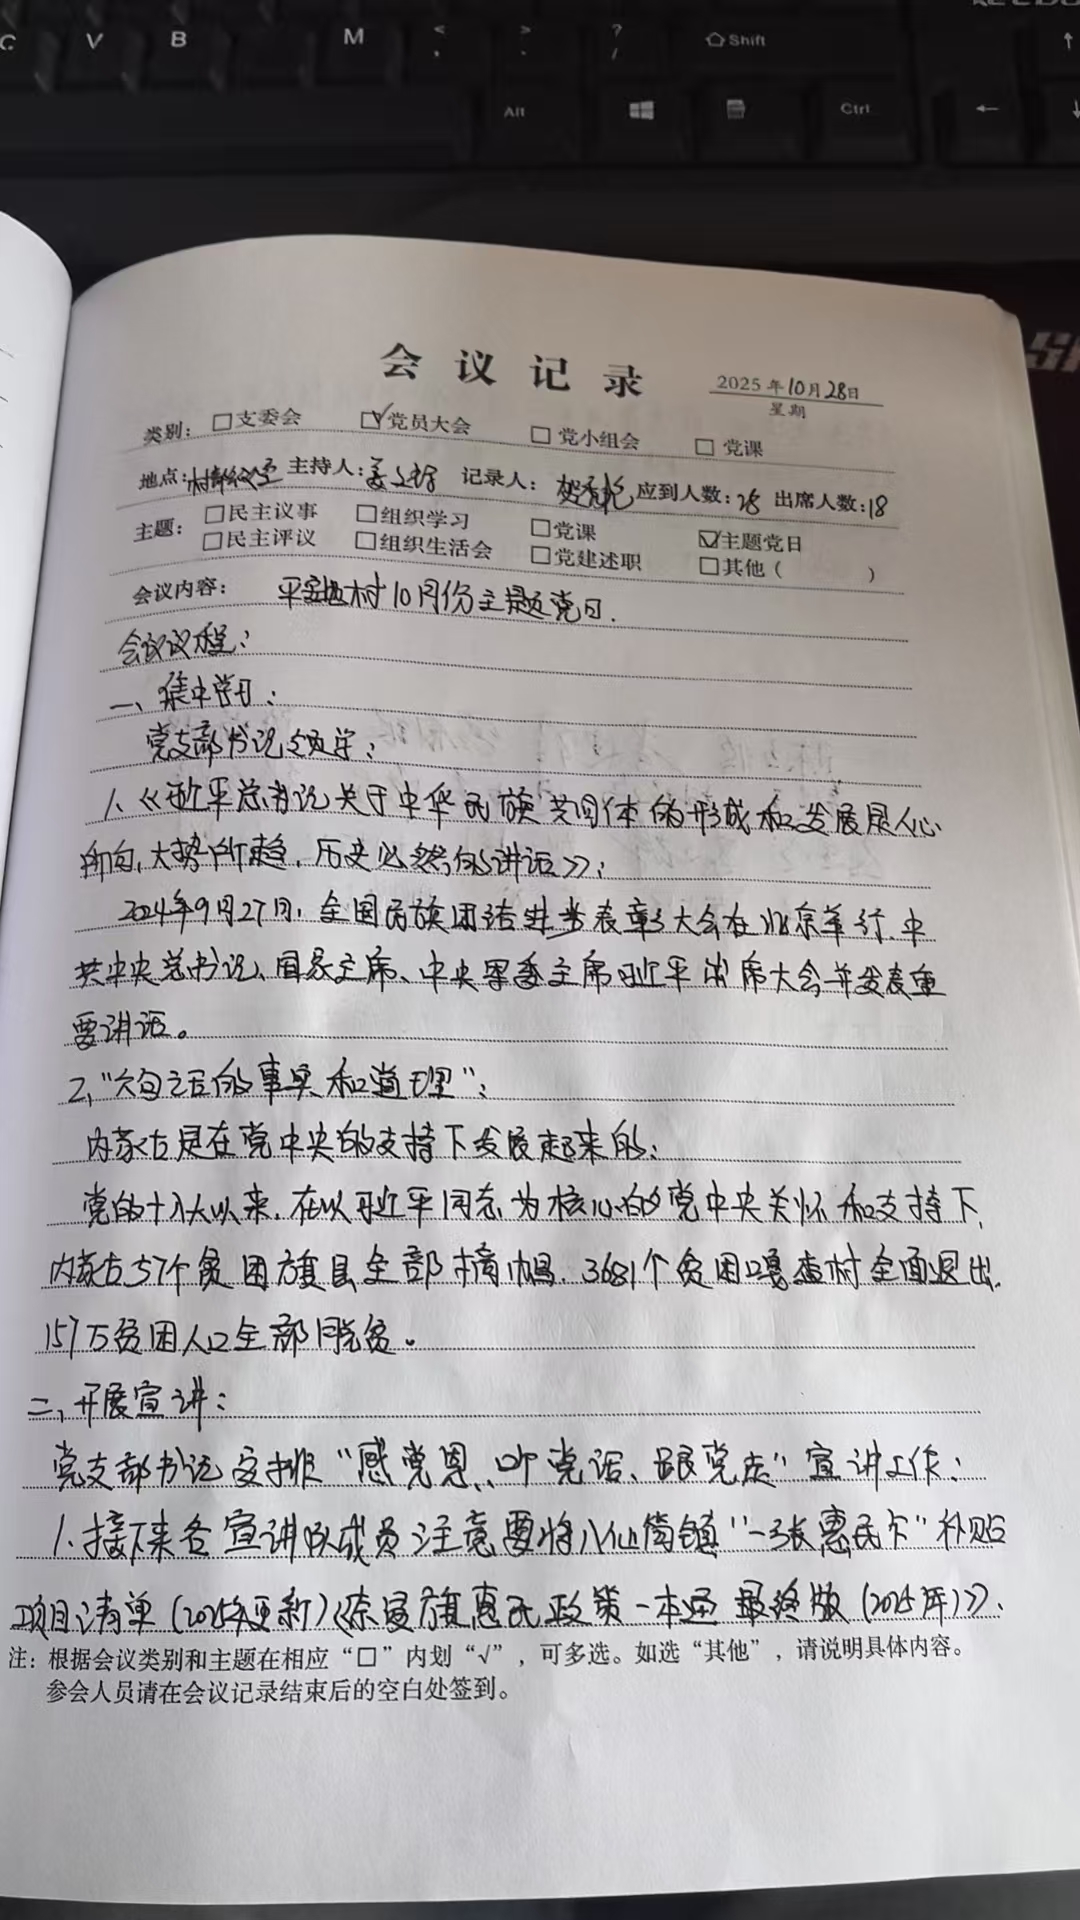 C V B M < , > . ? / Shift
Alt Ctrl ←
会议记录
2025年10月28日
星期
类别: □支委会 ☑党员大会 □党小组会 □党课
地点:村会议室 主持人: 记录人: 应到人数:28 出席人数:18
主题: □民主议事 □组织学习 □党课 ☑主题党日
□民主评议 □组织生活会 □党建述职 □其他( )
会议内容: 平安地村10月份主题党日.
会议议程:
一、集中学习:
党支部书记领学:
1.《习近平总书记关于中华民族共同体的形成和发展是人心
所向,大势所趋,历史必然的讲话》;
2024年9月27日,全国民族团结进步表彰大会在北京举行.中
共中央总书记、国家主席、中央军委主席习近平出席大会并发表重
要讲话。
2,“六句话的事实和道理”:
内蒙古是在党中央的支持下发展起来的:
党的十八大以来,在以习近平同志为核心的党中央关怀和支持下,
内蒙古57个贫困旗县全部摘帽,3681个贫困嘎查村全面退出,
157万贫困人口全部脱贫。
二、开展宣讲:
党支部书记安排“感党恩、听党话、跟党走”宣讲工作:
1.接下来各宣讲队成员注意要将八仙筒镇“一张惠民卡”补贴
项目清单(2025年更新)《奈曼旗惠民政策一本通最终版(2025年)》、
注:根据会议类别和主题在相应“□”内划“√”,可多选。如选“其他”,请说明具体内容。
参会人员请在会议记录结束后的空白处签到。